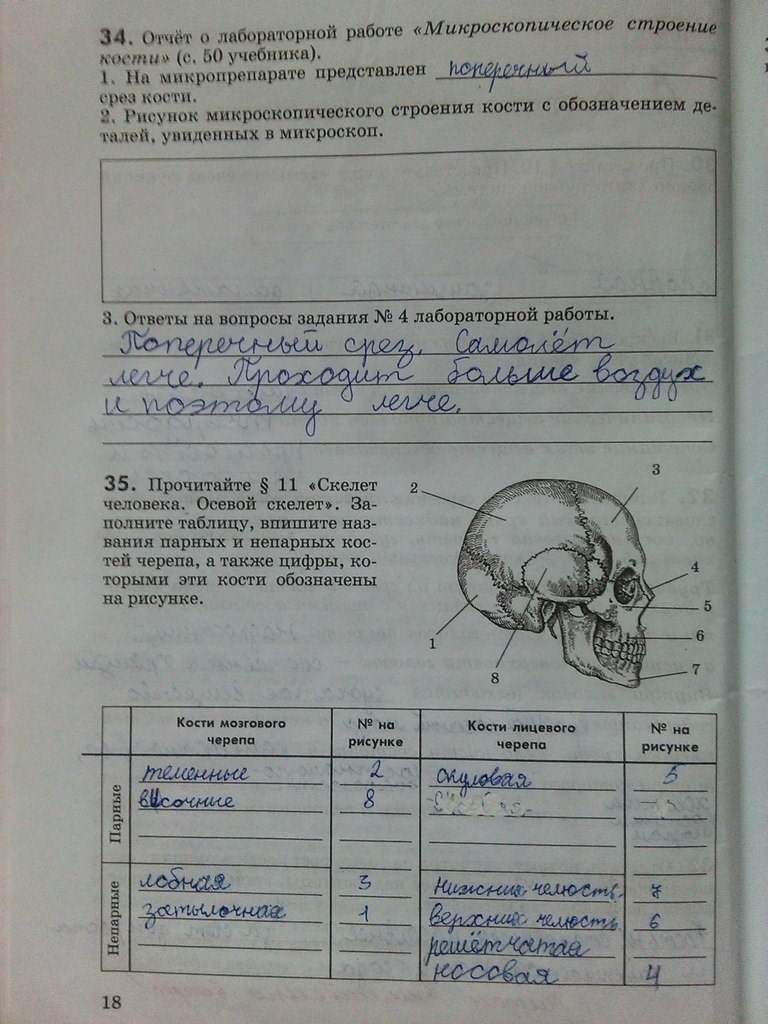 34. Отчёт о лабораторной работе «Микроскопическое строение
кости» (с. 50 учебника).
1. На микропрепарате представлен поперечный
срез кости.
2. Рисунок микроскопического строения кости с обозначением де-
талей, увиденных в микроскоп.
3. Ответы на вопросы задания № 4 лабораторной работы.
Поперечный срез. Самолёт
легче. Проходит больше воздух
и поэтому легче.
35. Прочитайте § 11 «Скелет
человека. Осевой скелет». За-
полните таблицу, впишите наз-
вания парных и непарных кос-
тей черепа, а также цифры, ко-
торыми эти кости обозначены
на рисунке.
2
3
4
5
6
7
1
8
Кости мозгового черепа № на рисунке Кости лицевого черепа № на рисунке
Парные
теменные 2 скуловая 5
височные 8
Непарные
лобная 3 нижняя челюсть 7
затылочная 1 верхняя челюсть 6
решётчатая
носовая 4
18